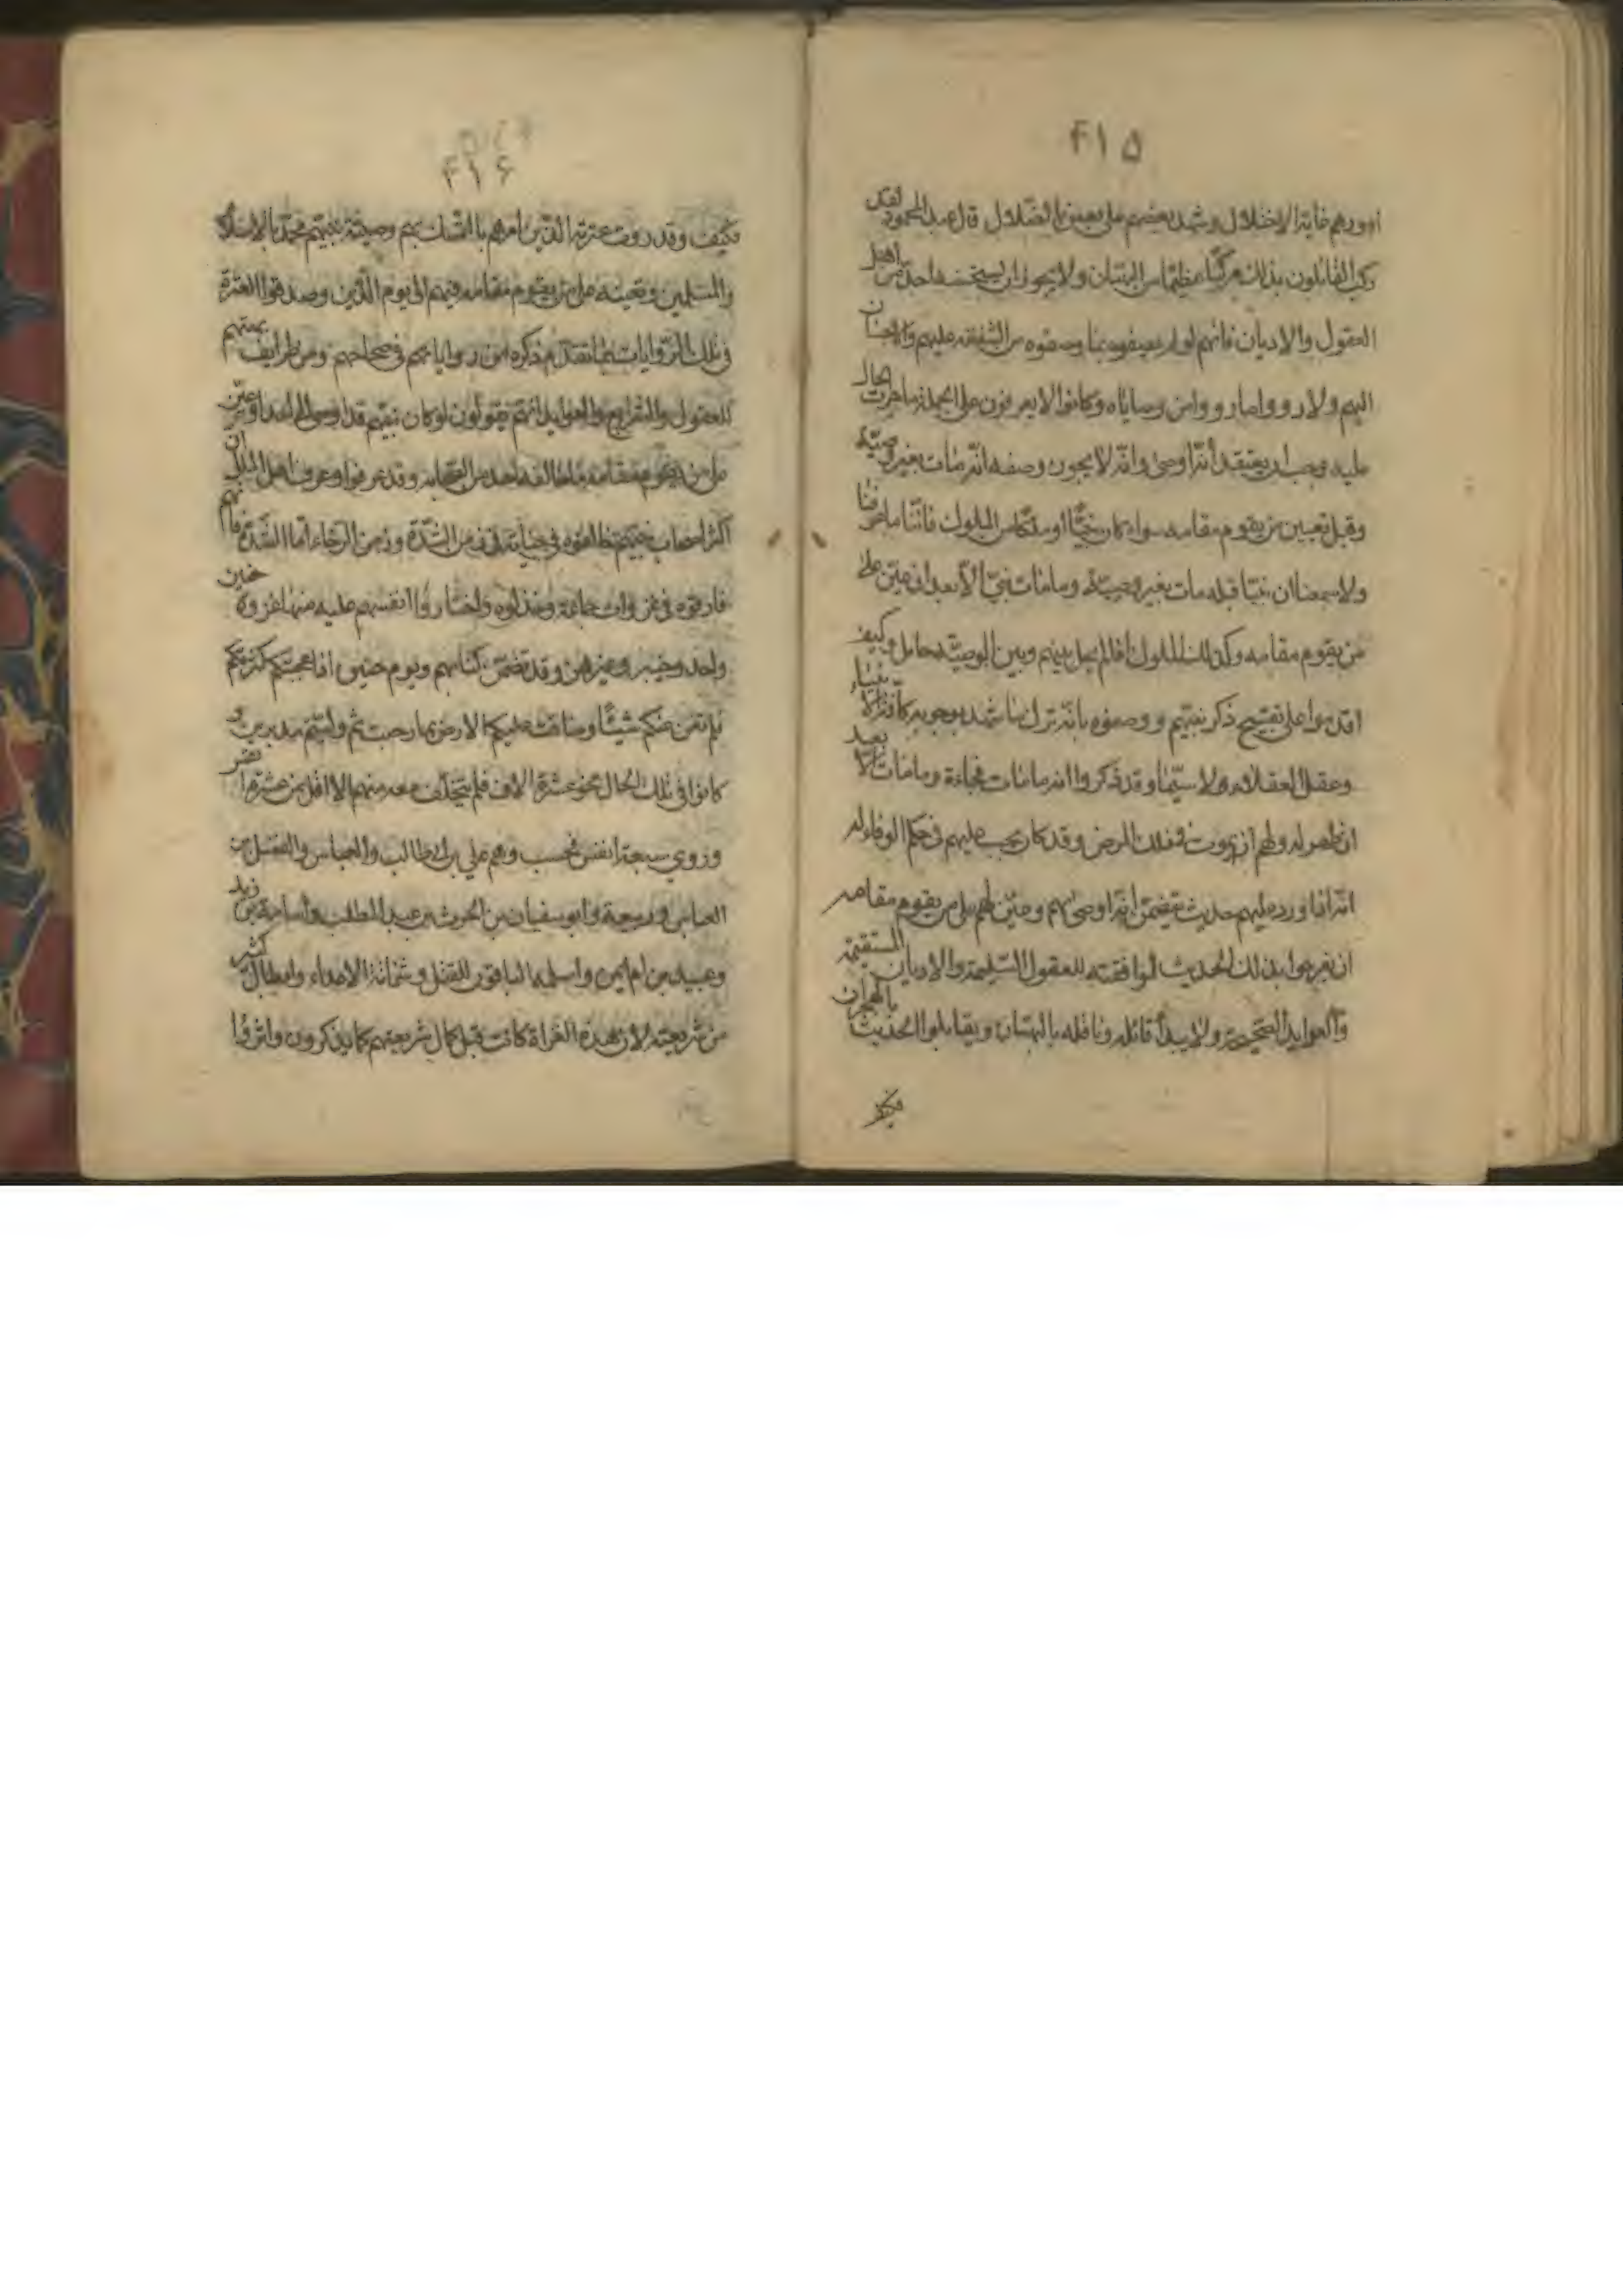 ۴۱۵
امورهم غاية الاختلال وشهد بعضهم على بعض بالضلال قال عبد المحمود لقد
ركب القائلون بذلك مركبا عظيما من البهتان ولا يجوز ان يستحسنه احد من اهل
العقول والاديان فانهم لو لم يصفوه بما وصفوه من الشفقة عليهم والاحسان
اليهم ولا رووا ما رووا من وصاياه وكانوا لا يعرفون على الجملة ما جرت الحال
عليه وجب ان يعتقد أنه اوصى وانه لا يجوز وصفه انه مات بغير وصية
وقبل تعيين من يقوم مقامه سواء كان نبيا او ملكا من الملوك فاننا ما عرفنا
ولا سمعنا ان نبيا قبله مات بغير وصية وما مات نبي الا بعد ان عين على
من يقوم مقامه وكذلك الملوك اذا لم يحل بينهم وبين الوصية حائل وكيف
اقدموا على تقبيح ذكر نبيهم ووصفوه بانه ترك ما شهد بوجوبه كافة الانبياء
وعقل العقلاء ولا سيما وقد ذكروا انه ما مات فجاءة وما مات الا بعد
ان ظهر له ولهم انه يموت في ذلك المرض وقد كان يجب عليهم في حكم الوفاء له
انه اذا ورد عليهم حديث يتضمن انه اوصى بهم وعين لهم على من يقوم مقامه
ان يفرحوا بذلك الحديث لموافقته للعقول السليمة والاديان المستقيمة
والعوايد الصحيحة ولا يبدأ قائله وناقله بالبهتان ويقابلوا الحديث بالهجران
فكيف
۴۱۶
فكيف وقد روت عترته الذين امرهم بالتمسك بهم وصية نبيهم محمد بالاسلام
والمسلمين وتعيينه على من يقوم مقامه فيهم الى يوم الدين وصدقوا العترة
في تلك الروايات بما تقدم ذكره من رواياتهم في صحاحهم ومن طرايف بهتهم
للعقول والشرايع والعوايد انهم يقولون لو كان نبيهم قد اوصى الى احد او عين
على من يقوم مقامه ما خالفه احد من الصحابة وقد عرفوا وعرف اهل الملل ان
اكثر اصحاب نبيهم خالفوه في حياته في زمن الشدة وزمن الرخاء اما الشدة فانهم
فارقوه في غزوات جماعة وخذلوه واختاروا انفسهم عليه منها غزوة حنين
واحد وخيبر وغيرهن وقد تضمن كتابهم ويوم حنين اذ اعجبتكم كثرتكم
فلم تغن عنكم شيئا وضاقت عليكم الارض بما رحبت ثم وليتم مدبرين و
كانوا في تلك الحال نحو عشرة الاف فلم يتخلف معه منهم الا اقل من عشرة نفر
وروي سبعة انفس فحسب وهم علي بن ابي طالب والعباس والفضل بن
العباس وربيعة وابو سفيان بن الحرث بن عبد المطلب واسامة بن زيد
وعبيد بن ام ايمن واسلمه الباقون للقتل وشماتة الاعداء وابطال كثير
من شريعته لان هذه الغزاة كانت قبل كمال شريعتهم كما يذكرون واثروا